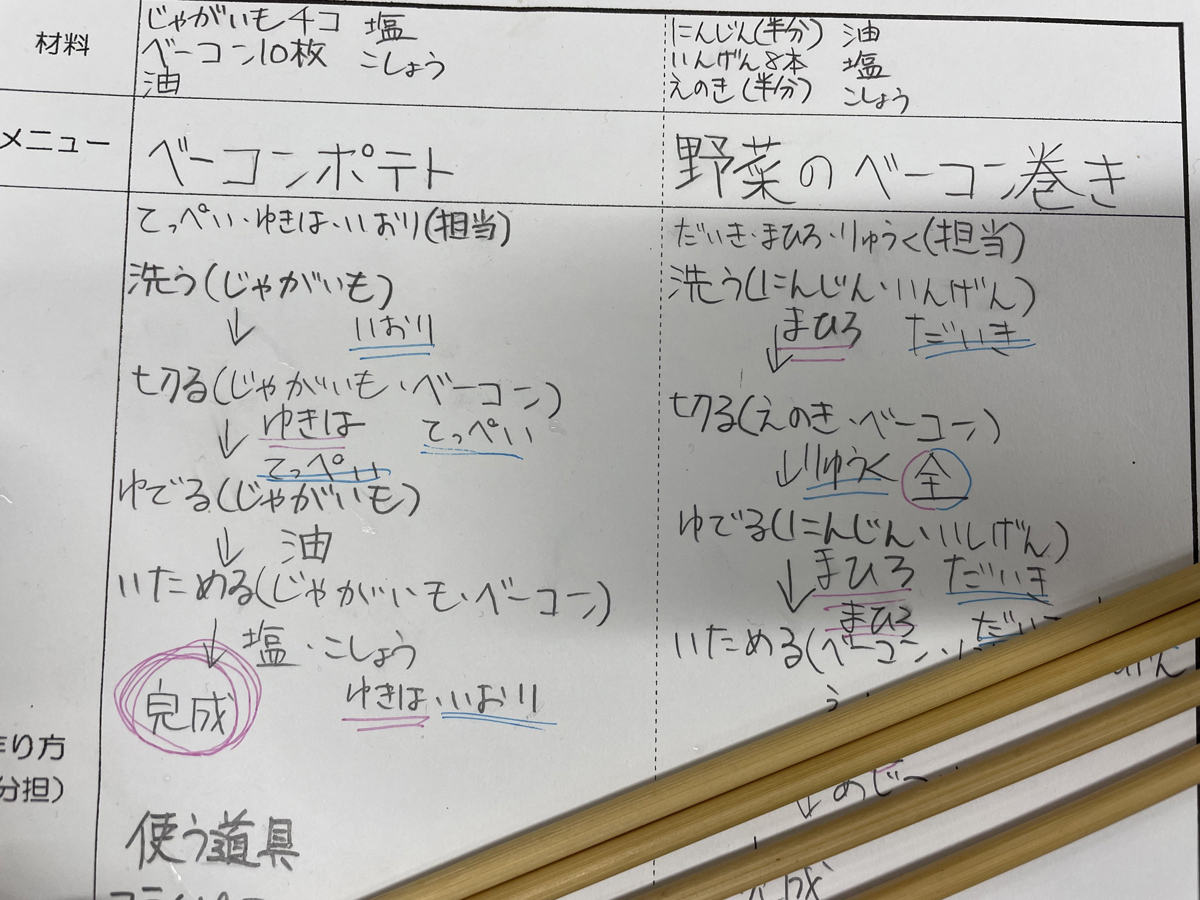 材料
じゃがいも4コ 塩
ベーコン10枚 こしょう
油
にんじん(半分) 油
いんげん8本 塩
えのき(半分) こしょう
メニュー
ベーコンポテト
野菜のベーコン巻き
り方
分担)
てっぺい・ゆきは・いおり(担当)
洗う(じゃがいも)
↓ いおり
切る(じゃがいも・ベーコン)
↓ ゆきは てっぺい
てっぺい
ゆでる(じゃがいも)
↓ 油
いためる(じゃがいも・ベーコン)
↓ 塩・こしょう
完成 ゆきは・いおり
使う道具
だいき・まひろ・りゅうく(担当)
洗う(にんじん・いんげん)
↓ まひろ だいき
切る(えのき・ベーコン)
↓ りゅうく 全
ゆでる(にんじん・いんげん)
↓ まひろ だいき
まひろ だい
いためる(ベーコン・
げん
う
↓
成